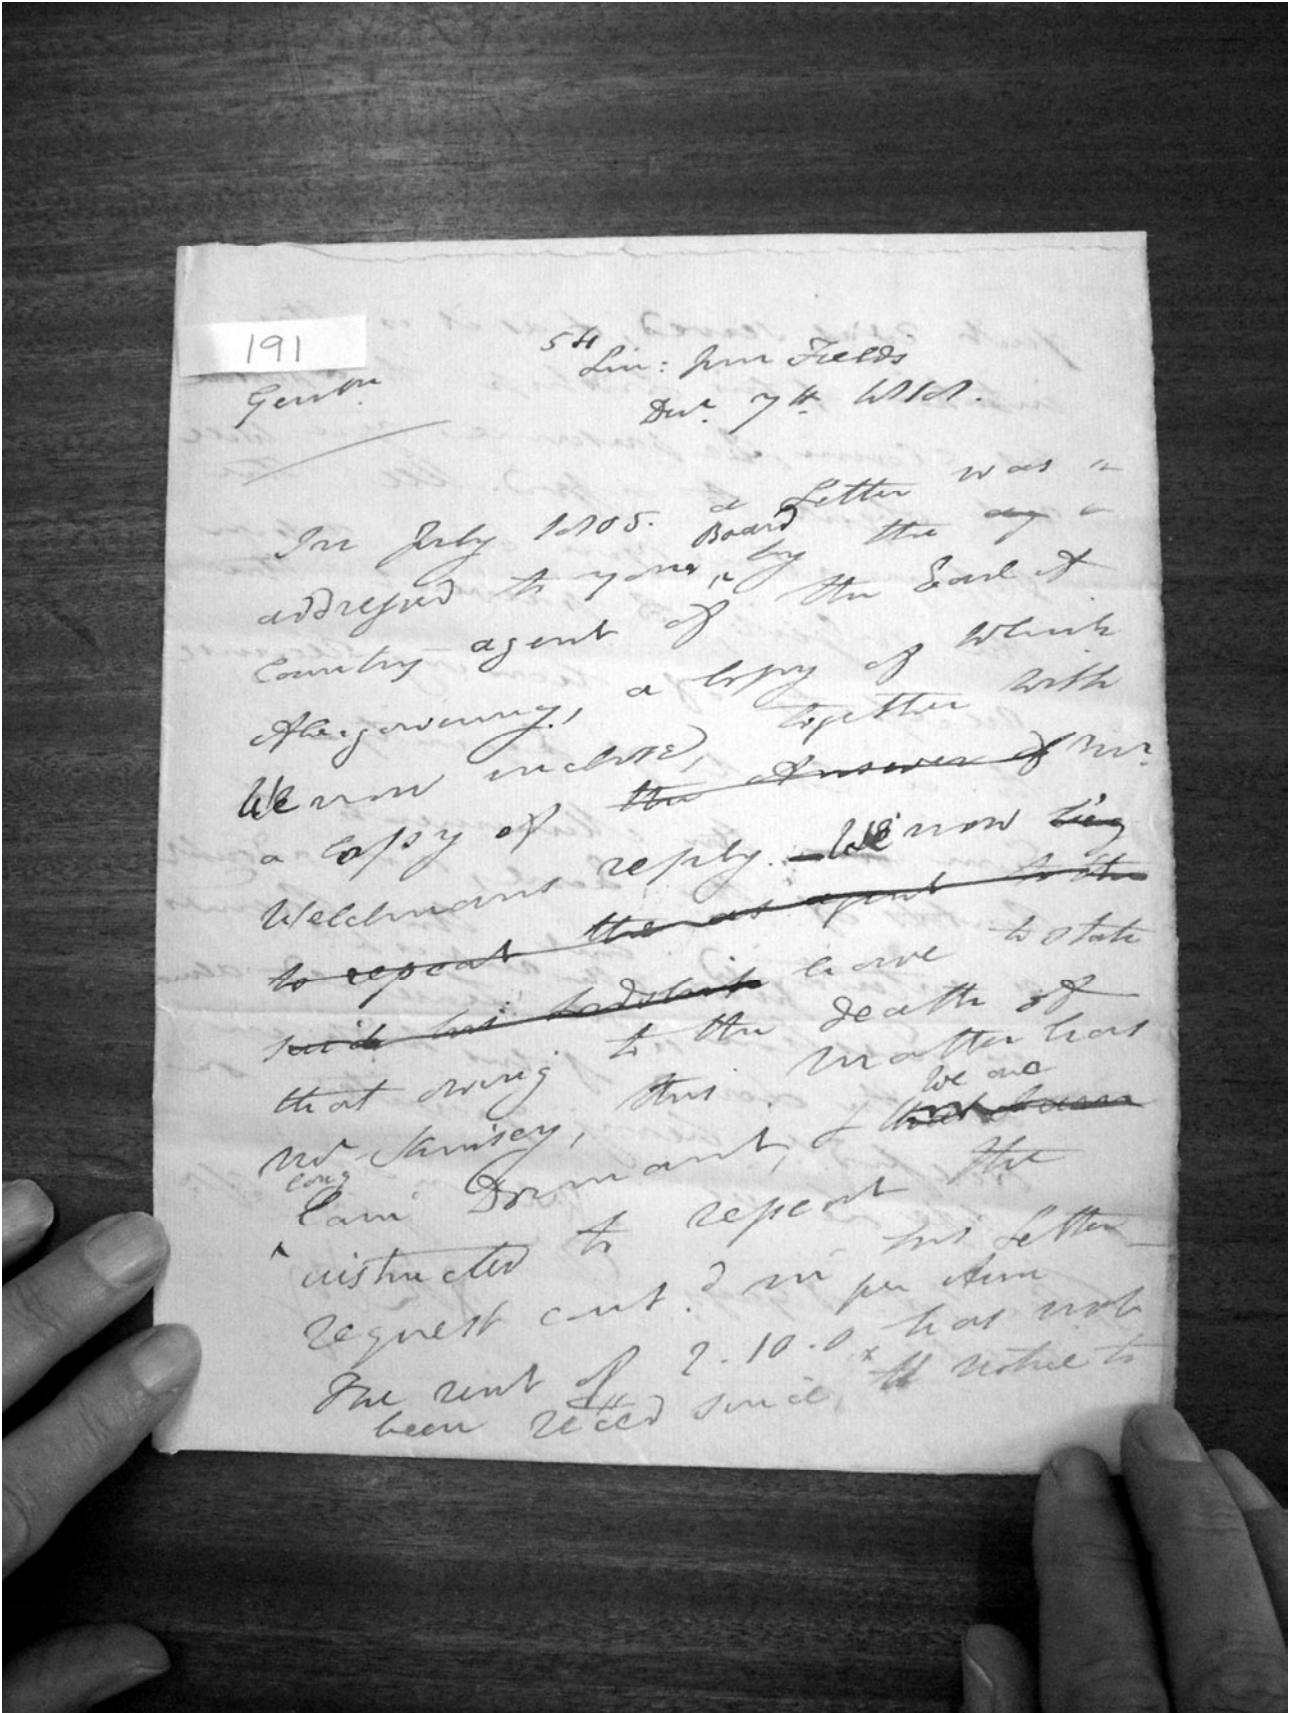 191
54 Lin: Inn Fields
Gentn
Decr. 7th 1818.
In July 1805. a Letter was
addressed to your Board by the ag
Country agent of the Earl of
Abergavenny, a Copy of which
We now inclose, together with
a Copy of the Answer of Mr.
Weldmans reply. We now beg
to repeat the as agent to the
said his Lordship leave to state
that owing to the death of
Mr. this matter has
long lain Dormant, & We are
instructed to repeat the
request contd in his Letter
The rent of 2.10.0 per Ann
been recd since has not
notice to